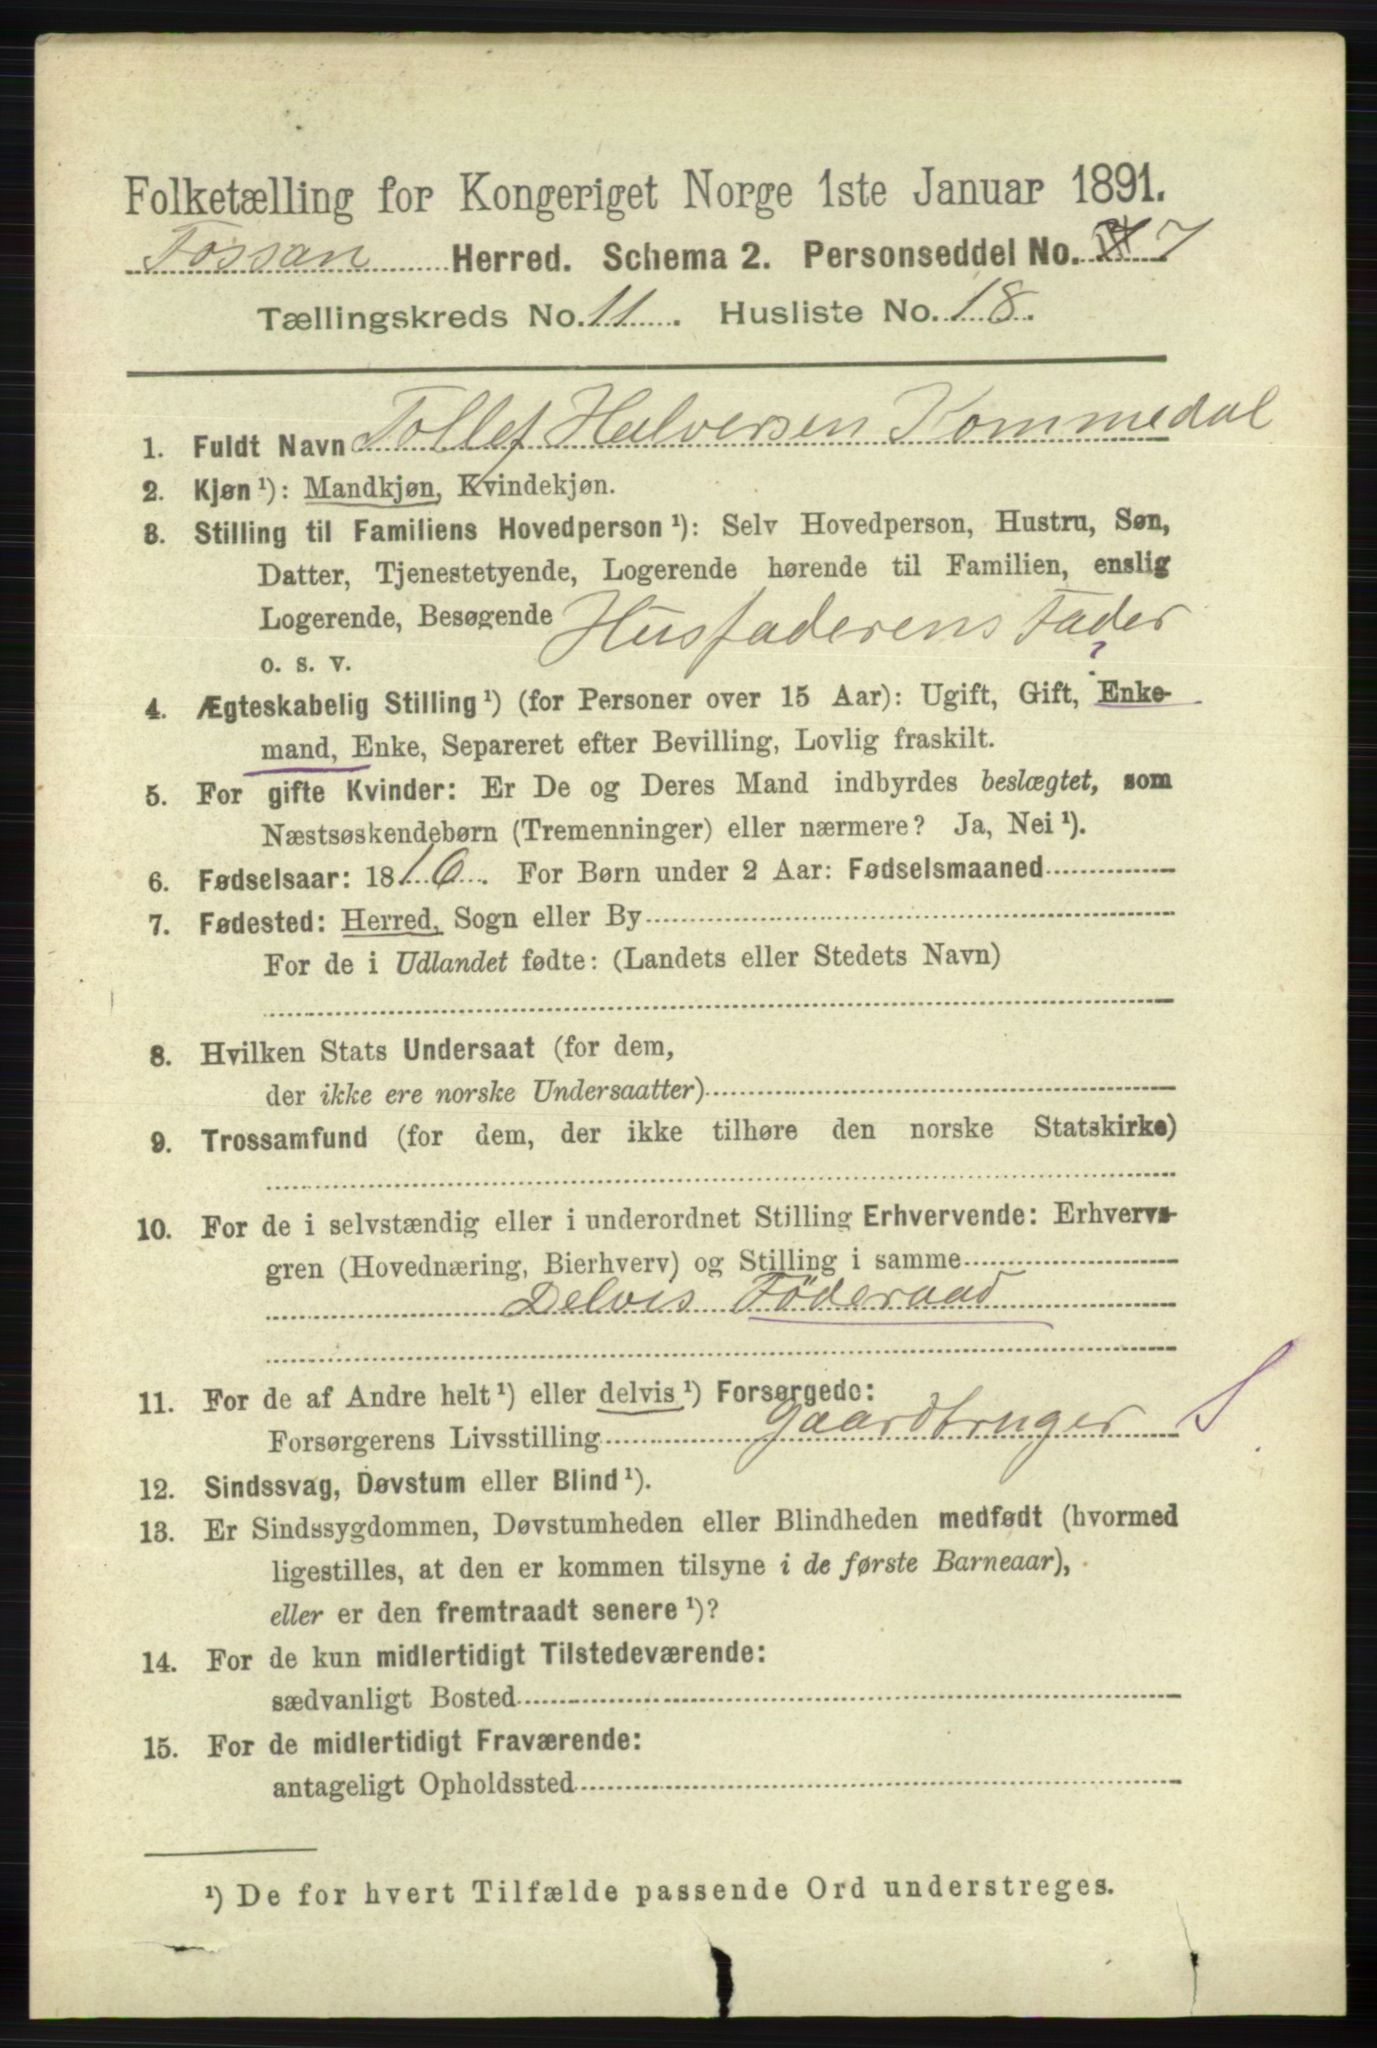 Folketælling for Kongeriget Norge 1ste Januar 1891.
Fossan Herred. Schema 2. Personseddel No. 7
Tællingskreds No. 11. Husliste No. 18.
1. Fuldt Navn Tollef Halversen Kommedal
2. Kjøn ¹): Mandkjøn, Kvindekjøn.
3. Stilling til Familiens Hovedperson ¹): Selv Hovedperson, Hustru, Søn,
Datter, Tjenestetyende, Logerende hørende til Familien, enslig
Logerende, Besøgende Husfaderens Fader
o. s. v. ?
4. Ægteskabelig Stilling ¹) (for Personer over 15 Aar): Ugift, Gift, Enke-
mand, Enke, Separeret efter Bevilling, Lovlig fraskilt.
5. For gifte Kvinder: Er De og Deres Mand indbyrdes beslægtet, som
Næstsøskendebørn (Tremenninger) eller nærmere? Ja, Nei ¹).
6. Fødselsaar: 1816. For Børn under 2 Aar: Fødselsmaaned
7. Fødested: Herred, Sogn eller By
For de i Udlandet fødte: (Landets eller Stedets Navn)
8. Hvilken Stats Undersaat (for dem,
der ikke ere norske Undersaatter)
9. Trossamfund (for dem, der ikke tilhøre den norske Statskirke)
10. For de i selvstændig eller i underordnet Stilling Erhvervende: Erhvervs-
gren (Hovednæring, Bierhverv) og Stilling i samme
Delvis Föderaad
11. For de af Andre helt ¹) eller delvis ¹) Forsørgede:
Forsørgerens Livsstilling Gaardbruger S
12. Sindssvag, Døvstum eller Blind ¹).
13. Er Sindssygdommen, Døvstumheden eller Blindheden medfødt (hvormed
ligestilles, at den er kommen tilsyne i de første Barneaar),
eller er den fremtraadt senere ¹)?
14. For de kun midlertidigt Tilstedeværende:
sædvanligt Bosted
15. For de midlertidigt Fraværende:
antageligt Opholdssted
¹) De for hvert Tilfælde passende Ord understreges.